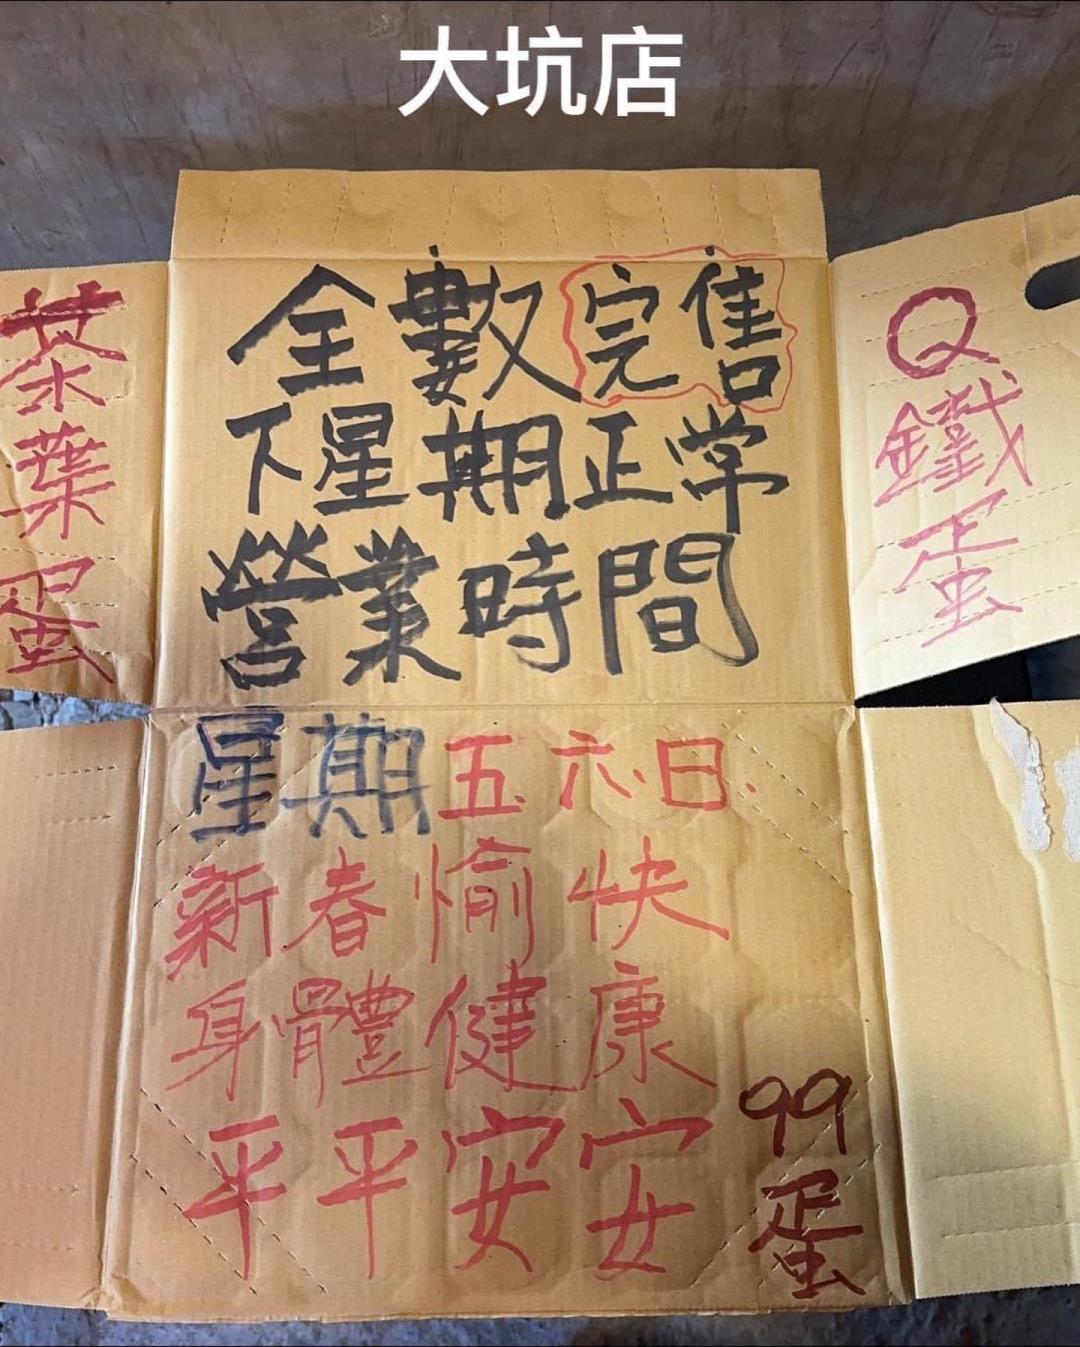 大坑店
全數完售
下星期正常
營業時間
星期五.六.日.
新春愉快
身體健康
平平安安
99
蛋
茶葉蛋
Q鐵蛋